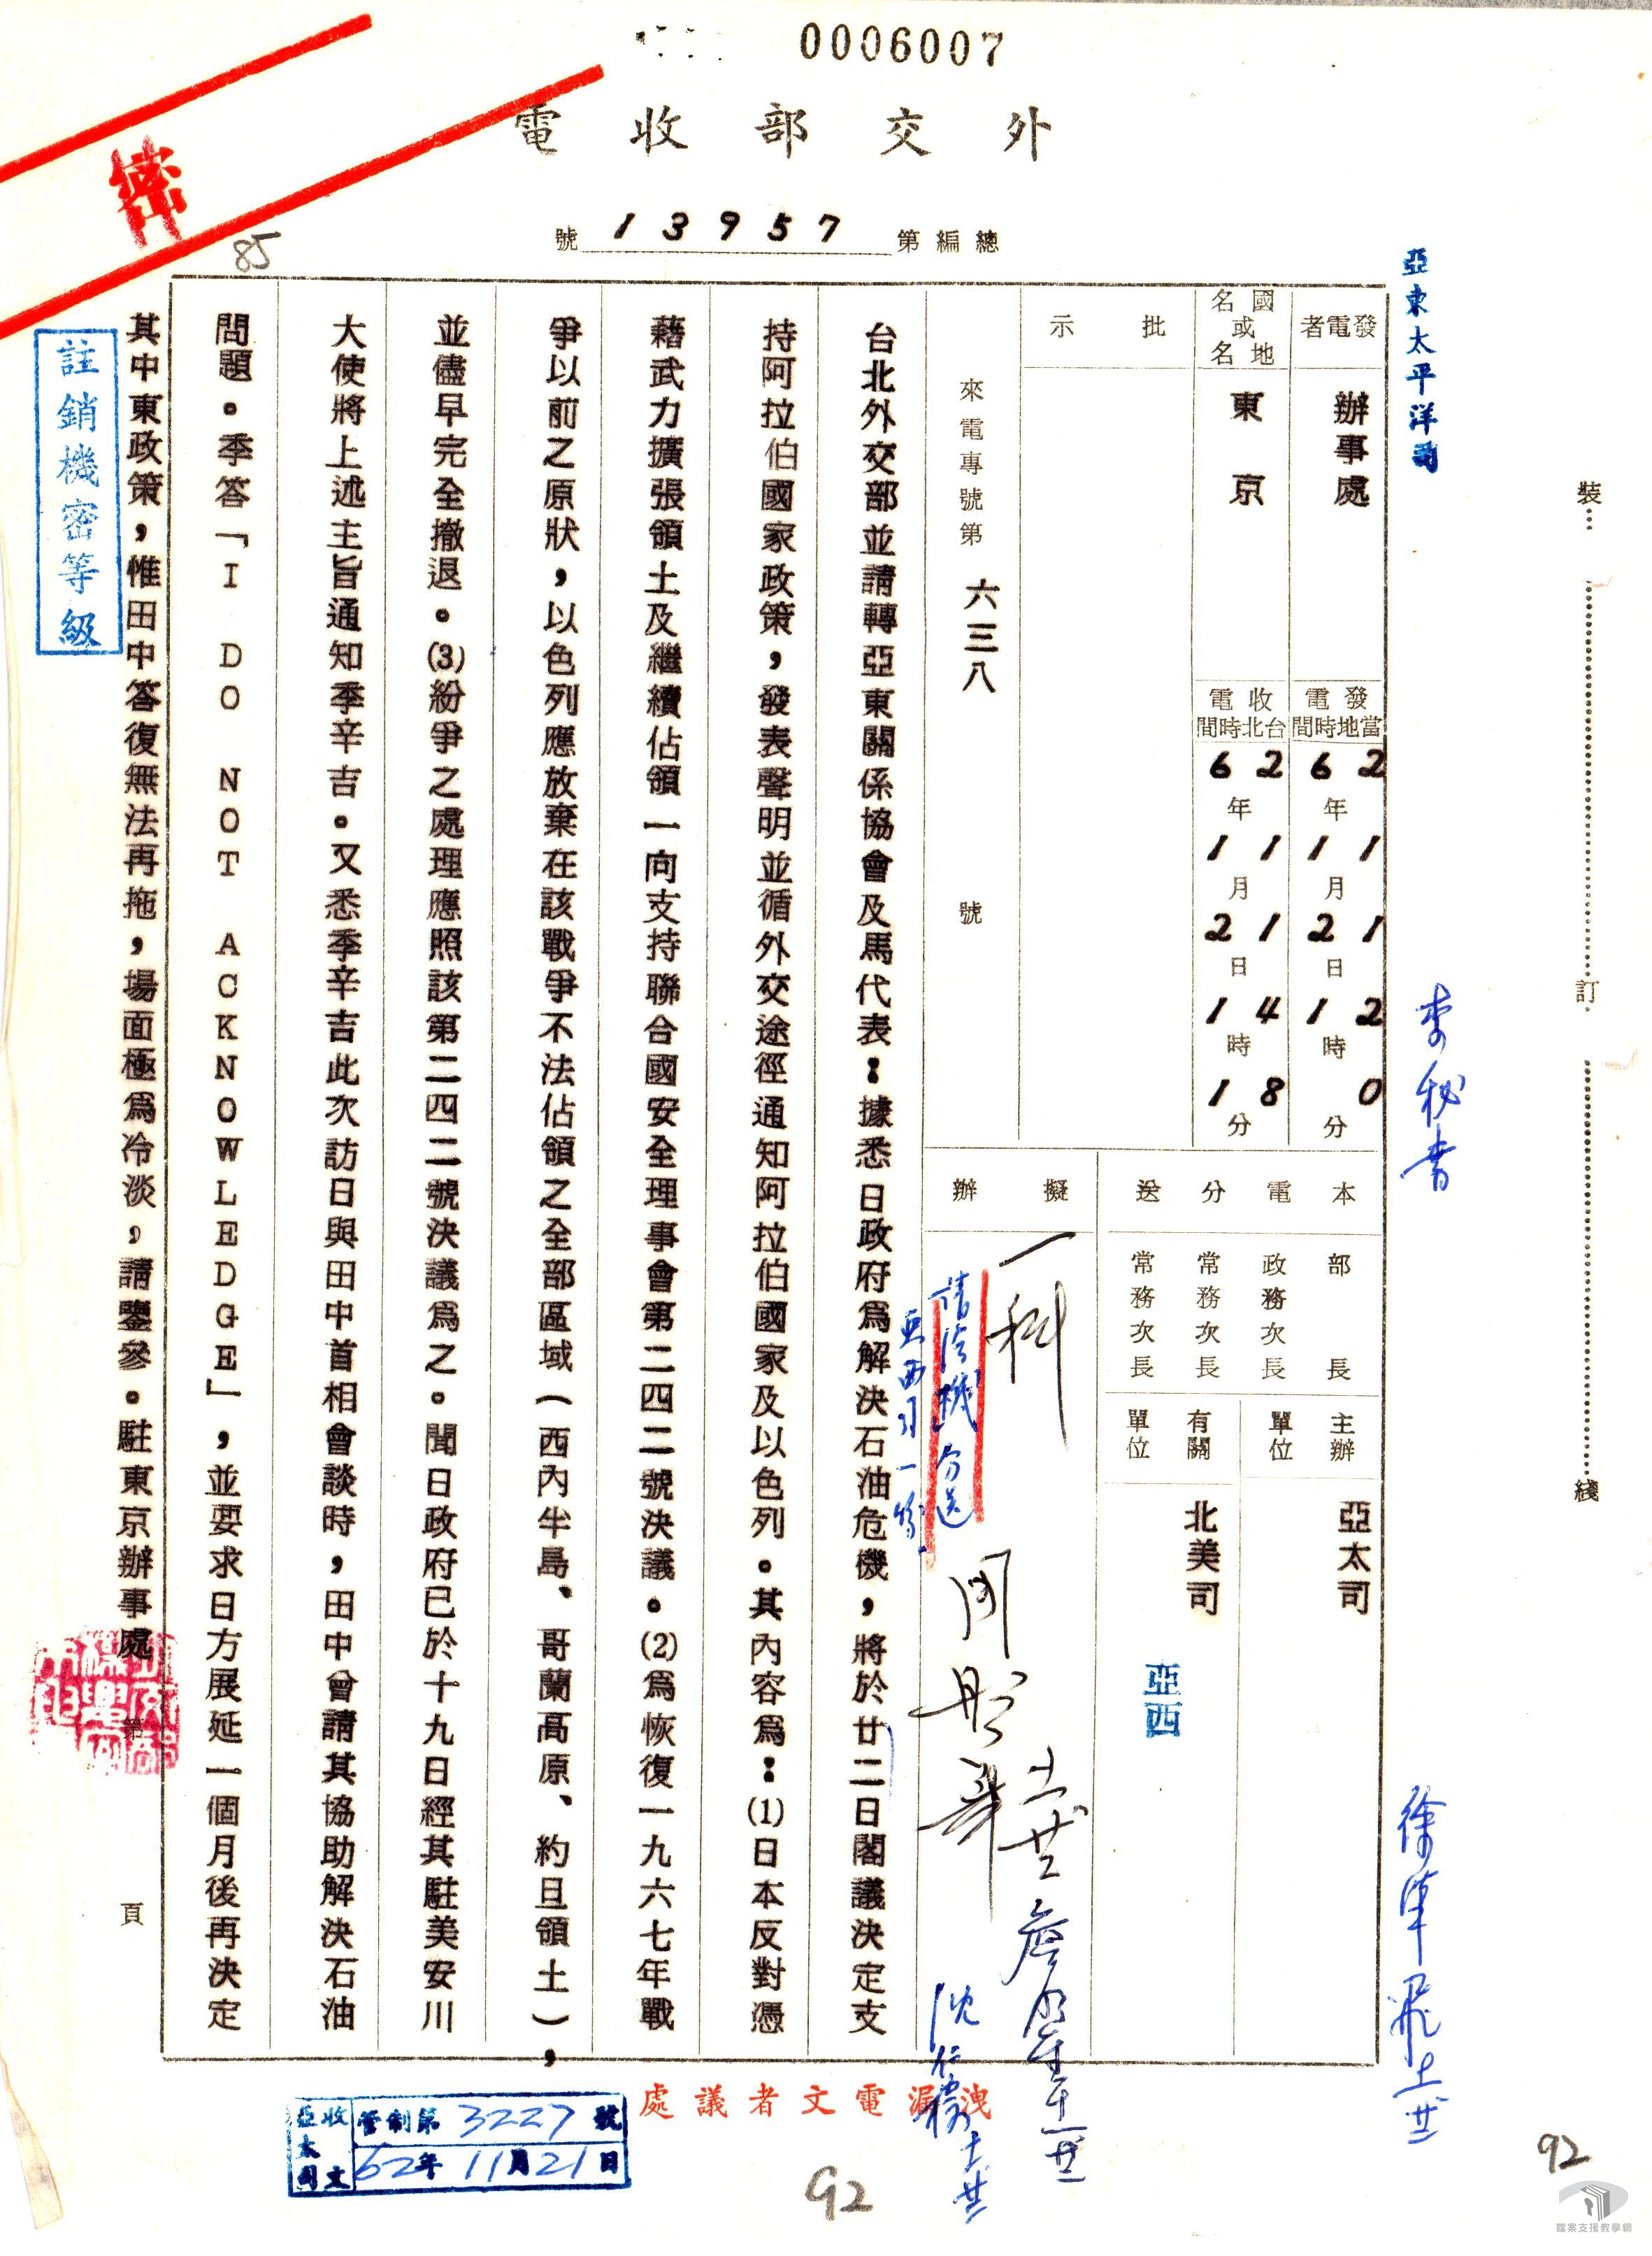 0006007
外交部收電
總編第13957號
密
85
註銷機密等級
亞東太平洋司
李秘書
發電者
辦事處
國名或地名
東京
當地時間發電
62年11月21日12時0分
台北時間收電
62年11月21日14時18分
批示
來電專號第六三八號
本電分送
部長
政務次長
常務次長
常務次長
主辦單位
亞太司
有關單位
北美司
亞西
擬辦
一科
台北外交部並請轉亞東關係協會及馬代表：據悉日政府爲解決石油危機，將於廿二日閣議決定支
持阿拉伯國家政策，發表聲明並循外交途徑通知阿拉伯國家及以色列。其內容爲：(1)日本反對憑
藉武力擴張領土及繼續佔領一向支持聯合國安全理事會第二四二號決議。(2)爲恢復一九六七年戰
爭以前之原狀，以色列應放棄在該戰爭不法佔領之全部區域（西內半島、哥蘭高原、約旦領土），
並儘早完全撤退。(3)紛爭之處理應照該第二四二號決議爲之。聞日政府已於十九日經其駐美安川
大使將上述主旨通知季辛吉。又悉季辛吉此次訪日與田中首相會談時，田中曾請其協助解決石油
問題。季答「I DO NOT ACKNOWLEDGE」，並要求日方展延一個月後再決定
其中東政策，惟田中答復無法再拖，場面極爲冷淡，請鑒參。駐東京辦事處
第 頁
洩漏電文者議處
亞太司收文
管制第3227號
62年11月21日
裝 訂 綫
92
92
檔案支援教學網